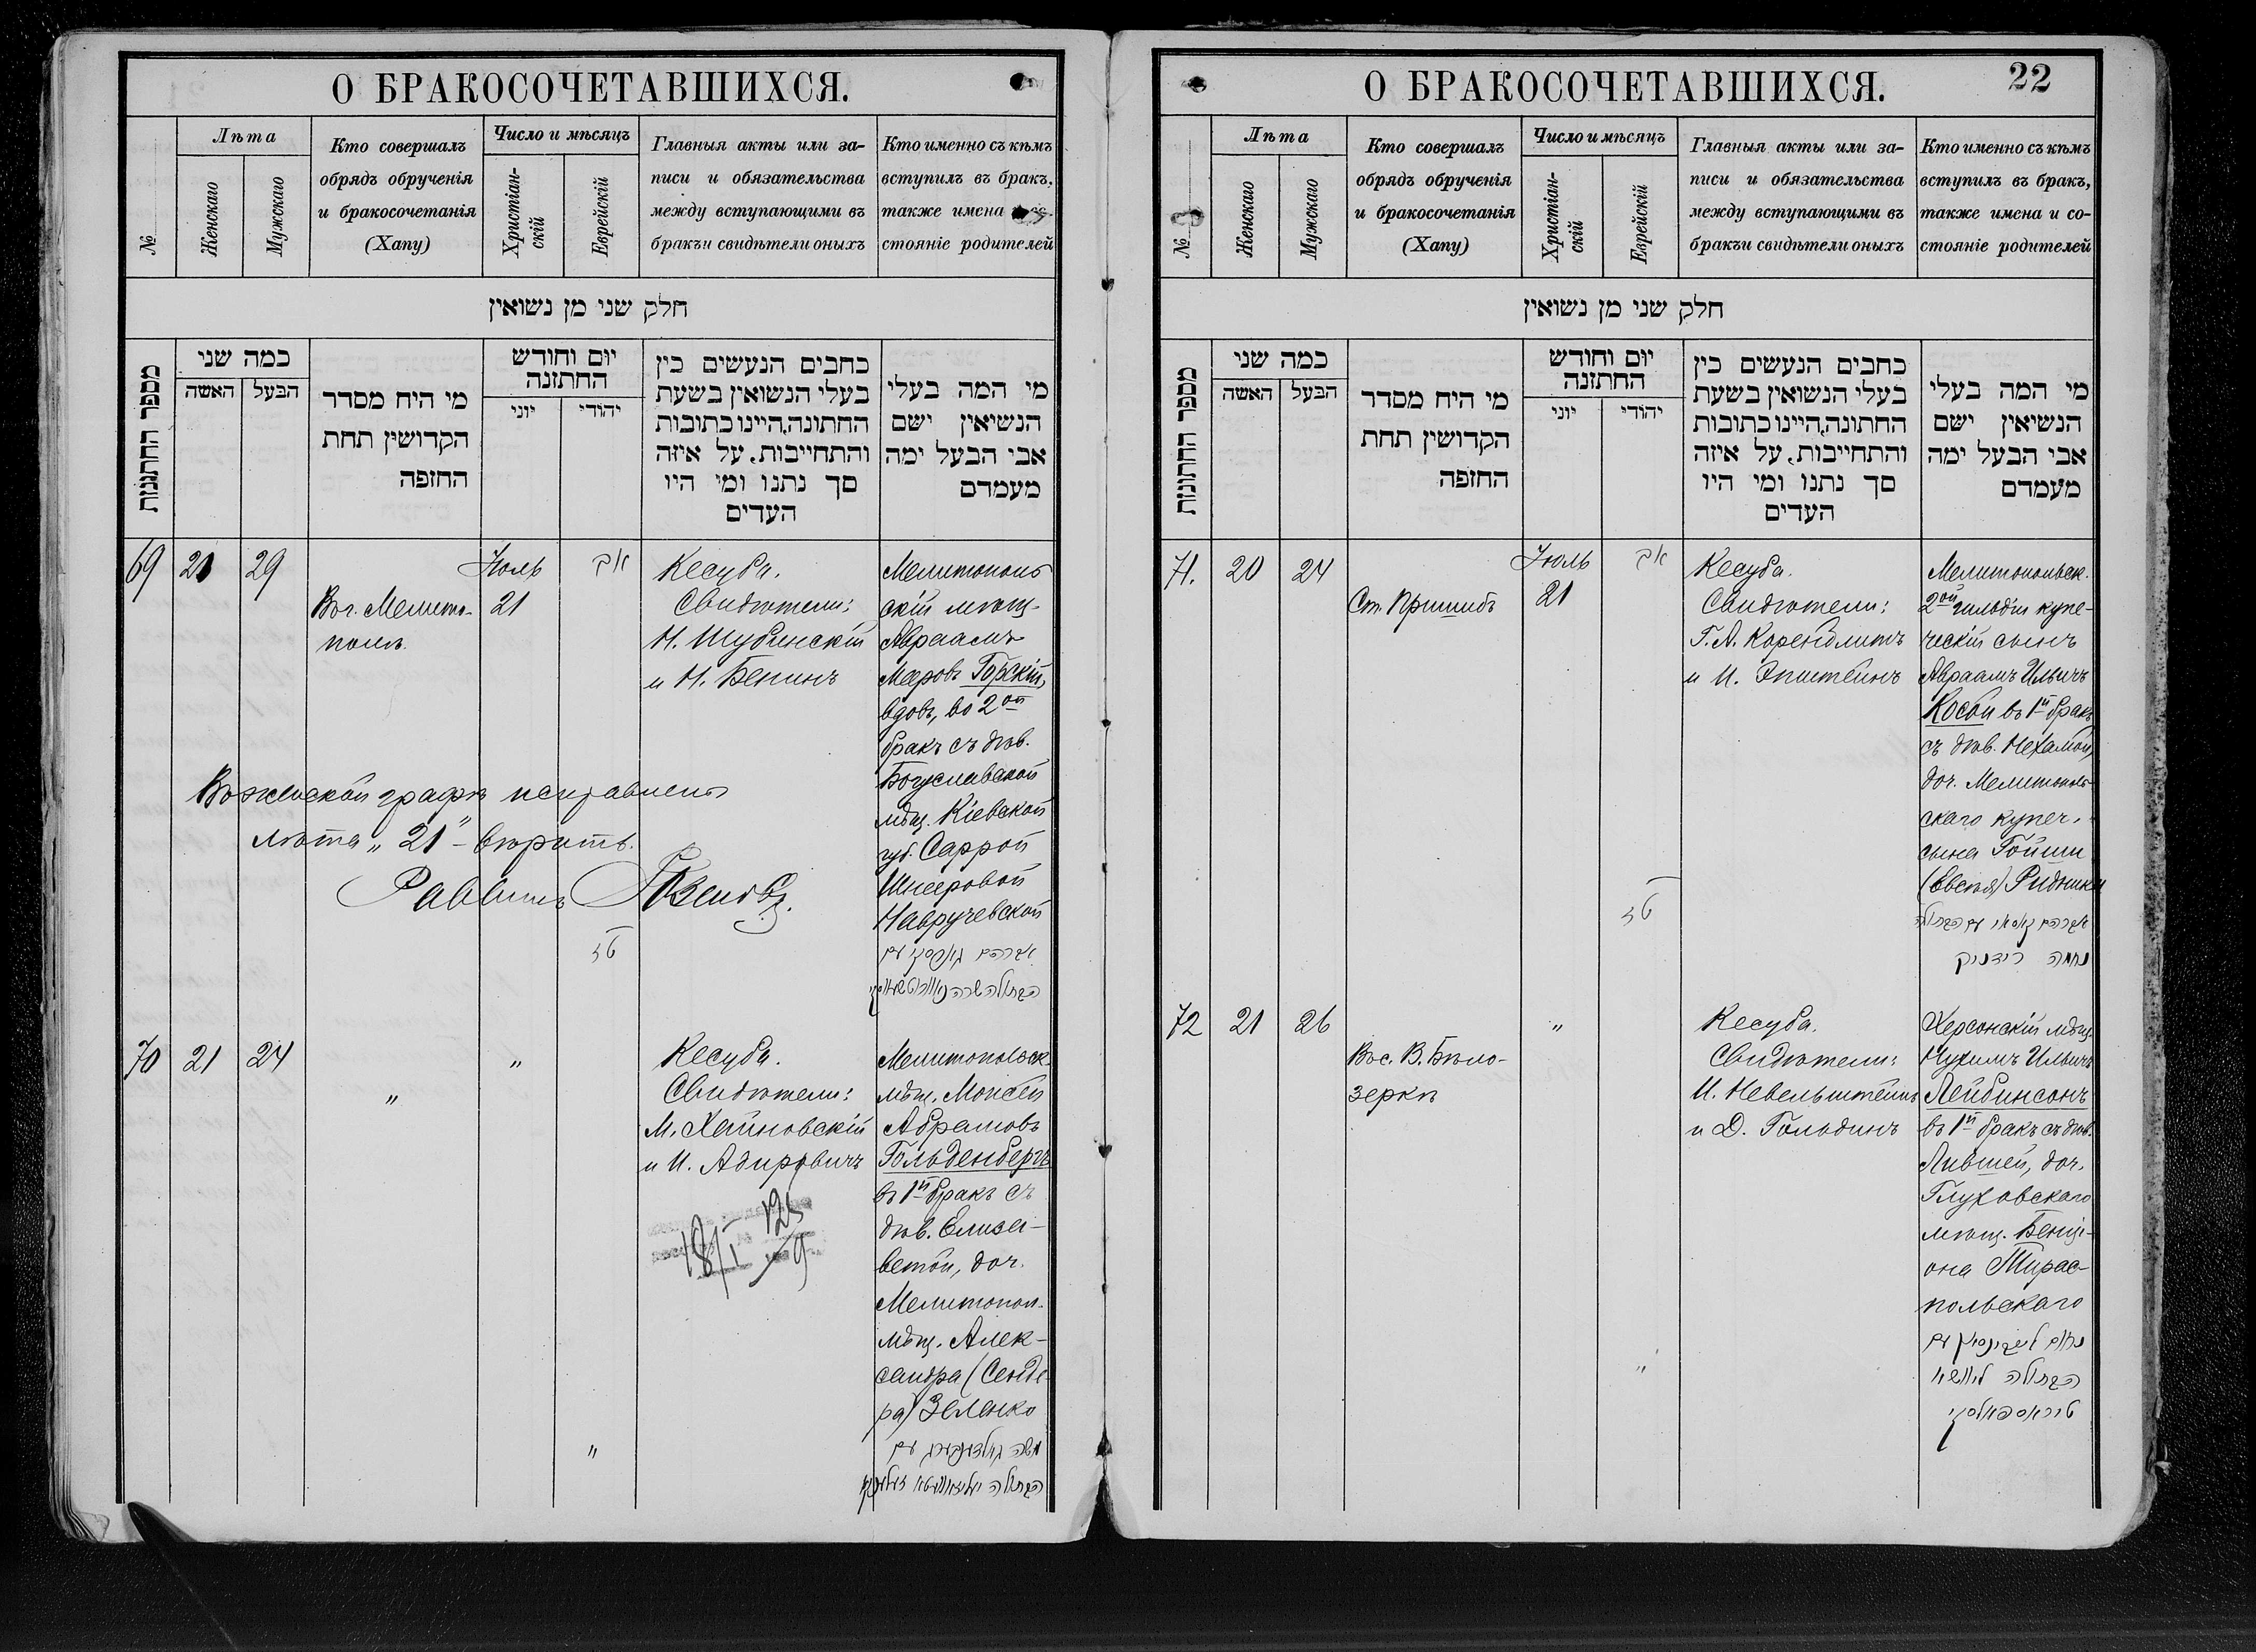 О БРАКОСОЧЕТАВШИХСЯ.
№
Лѣта
Женскаго
Мужскаго
Кто совершалъ
обрядъ обрученія
и бракосочетанія
(Хапу)
Число и мѣсяцъ
Христіан-
скій
Еврейскій
Главныя акты или за-
писи и обязательства
между вступающими въ
бракъи свидѣтели оныхъ
Кто именно съ кѣмъ
вступилъ въ бракъ,
также имена
стояніе родителей
חלק שני מן נשואין
מספר החתונות
כמה שני
האשה
הבעל
מי היח מסדר
הקדושין תחת
החופה
יום וחודש
החתונה
יוני
יהודי
כחבים הנעשים כין
בעלי הנשואין בשעת
החתונה,היינו כתובות
והתחייבות, על איזה
סך נתנו ומי היו
העדים
מי המה בעלי
הנשיאין ישם
אבי הבעל ימה
מעמדם
69
21
29
Въ г. Мелито-
полѣ
Іюль
21
אב
טז
Кесуба.
Свидѣтели:
Н. Шубинскій
и Н. Бенинъ
Мелитополь
скій мѣщ.
Авраамъ
Меровъ Горскій,
вдов., во 2ой
бракъ съ дѣв.
Богуславской
мѣщ. Кіевской
губ. Саррой
Шнееровой
Навручевской
אברהם גארסקי עם
הבתולה שרה
Въ женской графѣ исправлены
лѣта „21" – вѣрить.
Раввинъ
70
21
24
„
„
„
Кесуба.
Свидѣтели:
М. Хайновскій
и И. Абировичъ
18/I
Мелитопольск.
мѣщ. Моисей
Абрамовъ
Гольденбергъ
въ 1й бракъ съ
дѣв. Елиза-
ветой, доч.
Мелитопол.
мѣщ. Алек-
сандра (Сенде-
ра) Зеленко
משה גאלדענבערג עם
הבתולה
О БРАКОСОЧЕТАВШИХСЯ.
22
№
Лѣта
Женскаго
Мужскаго
Кто совершалъ
обрядъ обрученія
и бракосочетанія
(Хапу)
Число и мѣсяцъ
Христіан-
скій
Еврейскій
Главныя акты или за-
писи и обязательства
между вступающими въ
бракъи свидѣтели оныхъ
Кто именно съ кѣмъ
вступилъ въ бракъ,
также имена и со-
стояніе родителей
חלק שני מן נשואין
מספר החתונות
כמה שני
האשה
הבעל
מי היח מסדר
הקדושין תחת
החופה
יום וחודש
החתונה
יוני
יהודי
כחבים הנעשים כין
בעלי הנשואין בשעת
החתונה,היינו כתובות
והתחייבות, על איזה
סך נתנו ומי היו
העדים
מי המה בעלי
הנשיאין ישם
אבי הבעל ימה
מעמדם
71.
20
24
Ст. Пришибъ
Іюль
21
אב
טז
Кесуба.
Свидѣтели:
Г. А. Корендлитъ
и И. Эпштейнъ
Мелитопольск.
2ой гильдіи купе-
ческій сынъ
Авраамъ Ильичъ
Косой въ 1й бракъ
съ дѣв. Нехамой,
доч. Мелитополь-
скаго купеч.
сына Гойши
(Евсея) Ридника
אברהם קאסאי עם הבתולה
נחמה רידניק
72
21
26
Въ с. В. Бѣло-
зеркѣ
„
„
Кесуба.
Свидѣтели:
И. Невельштейнъ
и Д. Гольдинъ
Херсонскій мѣщ.
Нухимъ Ильичъ
Лейбинсонъ
въ 1й бракъ съ дѣв.
Лившей, доч.
Глуховскаго
мѣщ. Бенці-
она Тирас-
польскаго
נחום לייבינסאן עם
הבתולה ליוושא
טיראספאלסקי